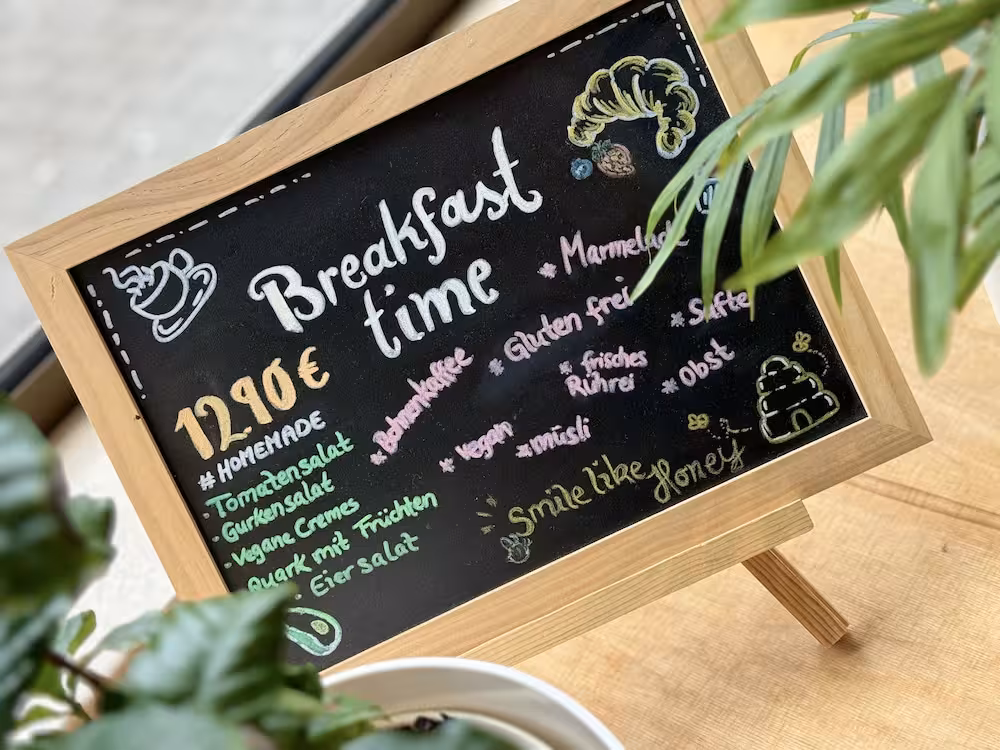 Breakfast
time
12.90 €
#HOMEMADE
- Tomatensalat
- Gurkensalat
- Vegane Cremes
Quark mit Früchten
- Eiersalat
* Bohnenkaffee
* Marmelade
* Gluten frei
* Säfte
* frisches
Rührei
* Obst
* Vegan
* müsli
Smile like Honey